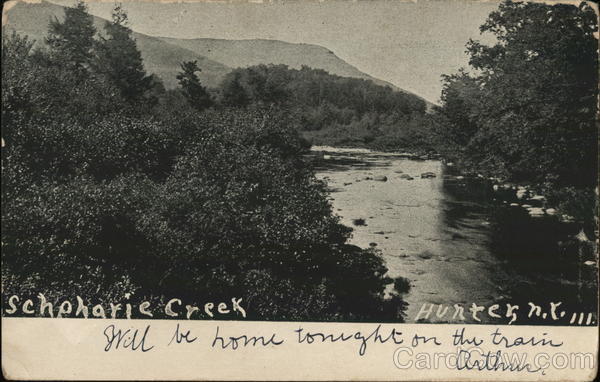 Schpharie Creek
Hunter, N.Y. 111.
Will be home tonight on the train
Arthur.
CardCow.com